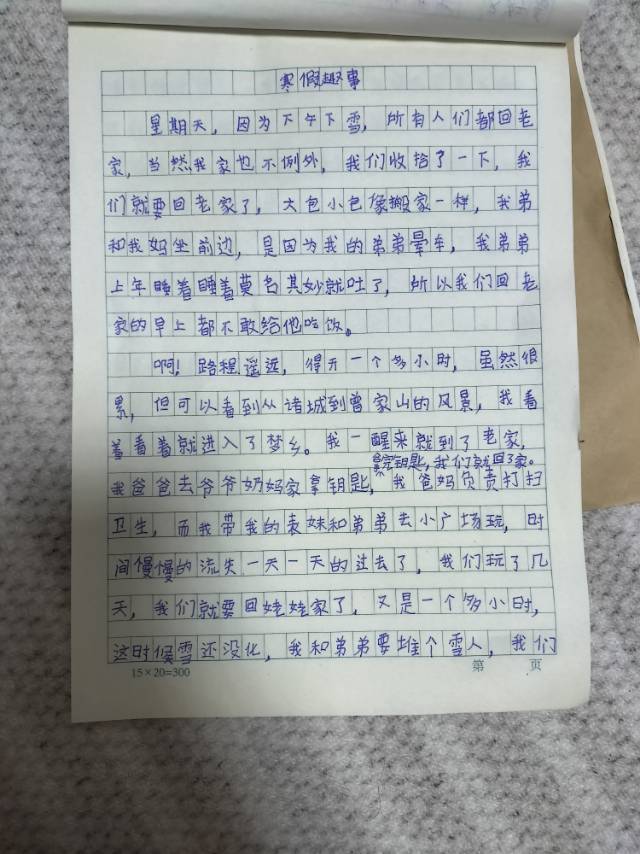 寒假趣事
星期天，因为下午下雪，所有人们都回老
家，当然我家也不例外，我们收拾了一下，我
们就要回老家了，大包小包像搬家一样，我弟
和我妈坐前边，是因为我的弟弟晕车，我弟弟
上年睡着睡着莫名其妙就吐了，所以我们回老
家的早上都不敢给他吃饭。
啊！路程遥远，得开一个多小时，虽然很
累，但可以看到从诸城到曾家山的风景，我看
着看着就进入了梦乡。我一醒来就到了老家，
拿完钥匙，我们就回了家。
我爸爸去爷爷奶奶家拿钥匙，我爸妈负责打扫
卫生，而我带我的表妹和弟弟去小广场玩，时
间慢慢的流失一天一天的过去了，我们玩了几
天，我们就要回姥姥家了，又是一个多小时，
这时候雪还没化，我和弟弟要堆个雪人，我们
15×20=300 第 页